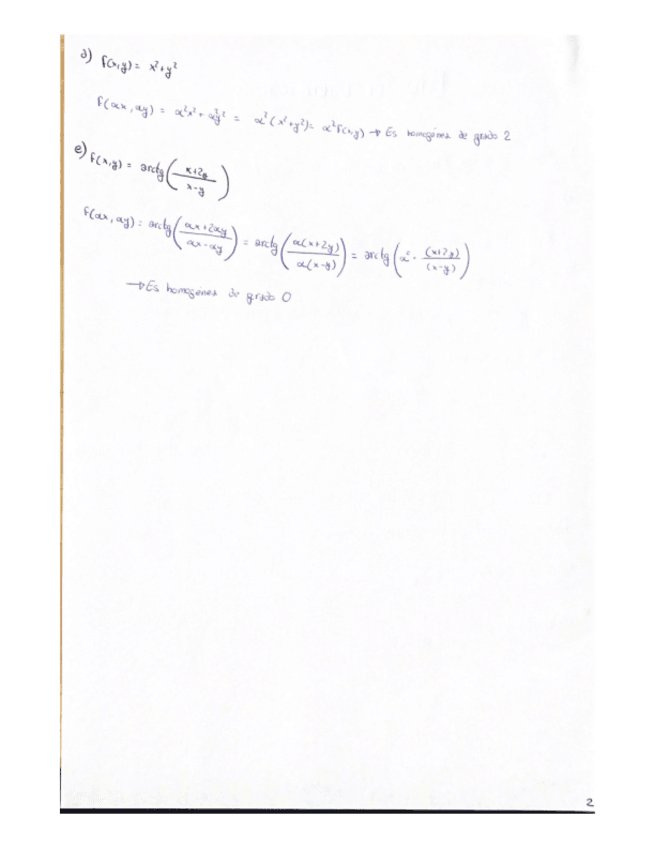 d) f(x,y) = x² + y²
f(αx, αy) = α²x² + α²y² = α²(x²+y²) = α²f(x,y) → Es homogénea de grado 2
e) f(x,y) = arctg((x+2y)/(x-y))
f(αx, αy) = arctg((αx+2αy)/(αx-αy)) = arctg((α(x+2y))/(α(x-y))) = arctg(α⁰ · (x+2y)/(x-y))
→ Es homogénea de grado 0
2